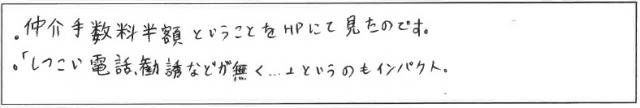 ・仲介手数料半額ということをHPにて見たのです。
・「しつこい電話、勧誘などが無く…」というのもインパクト。